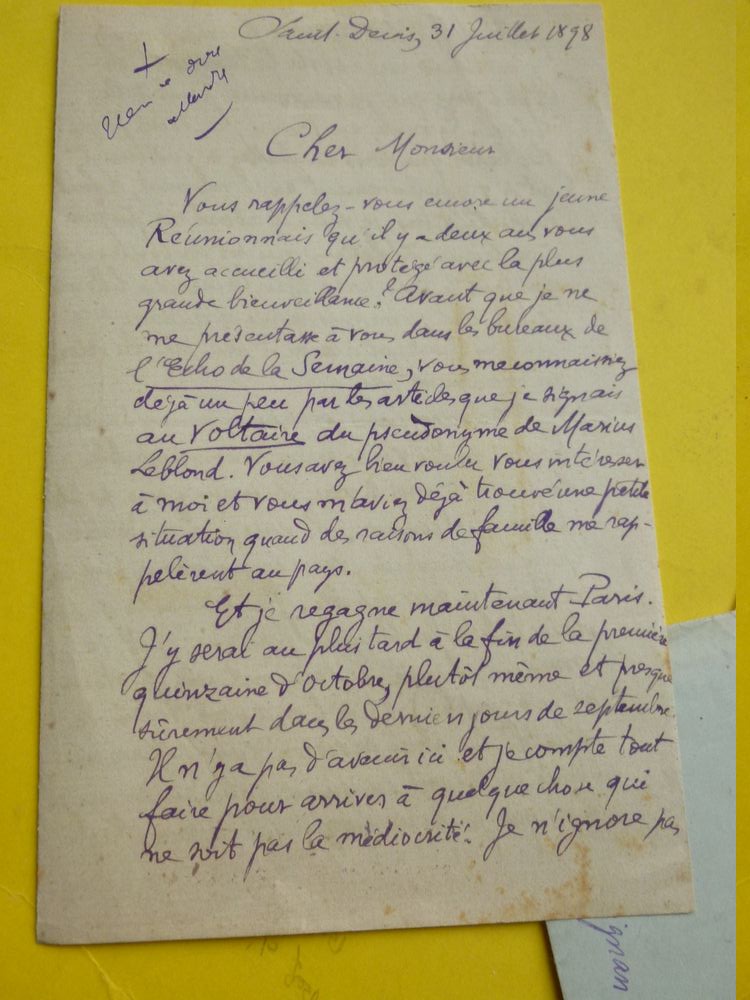 Saint-Denis, 31 Juillet 1898
Cher Monsieur
Vous rappelez-vous encore un jeune
Réunionnais qu'il y a deux ans vous
avez accueilli et protégé avec la plus
grande bienveillance? Avant que je ne
me présentasse à vous dans les bureaux de
l'Echo de la Semaine, vous me connaissiez
déjà un peu par les articles que je signais
au Voltaire du pseudonyme de Marius
Leblond. Vous avez bien voulu vous intéresser
à moi et vous m'aviez déjà trouvé une petite
situation quand des raisons de famille me rap-
pelèrent au pays.
Et je regagne maintenant Paris.
J'y serai au plus tard à la fin de la première
quinzaine d'Octobre, plutôt même et presque
sûrement dans les derniers jours de septembre.
Il n'y a pas d'avenir ici et je compte tout
faire pour arriver à quelque chose qui
ne soit pas la médiocrité. Je n'ignore pas